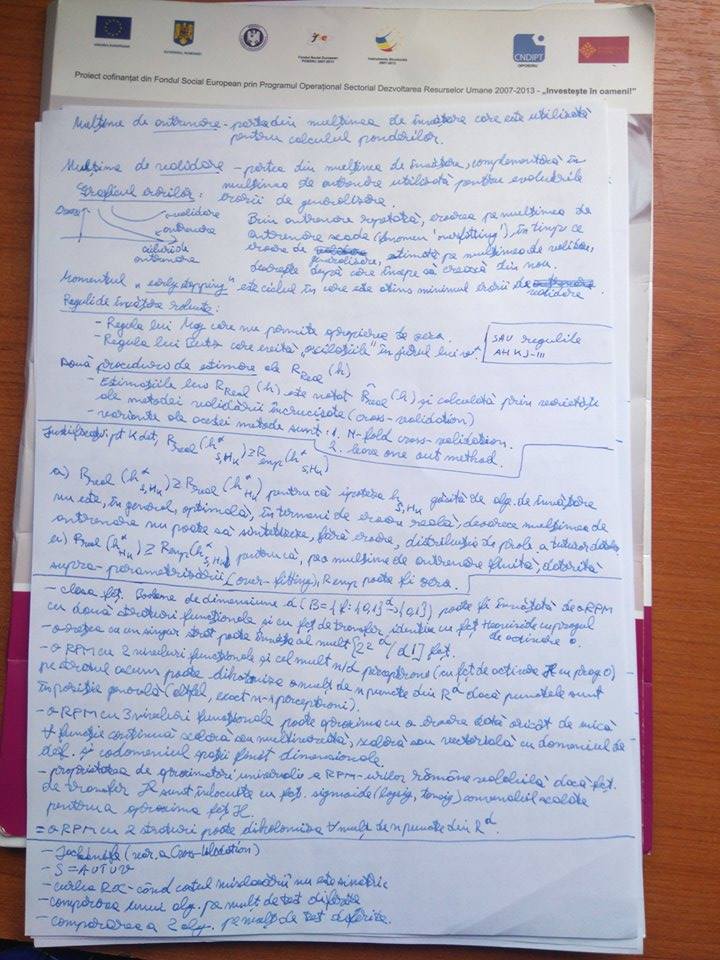 UNIUNEA EUROPEANĂ
GUVERNUL ROMÂNIEI
Fondul Social European
POSDRU 2007-2013
Instrumente Structurale
2007-2013
CNDIPT
OIPOSDRU
Proiect cofinanțat din Fondul Social European prin Programul Operațional Sectorial Dezvoltarea Resurselor Umane 2007-2013 - „Investește în oameni!"
Mulțime de antrenare - partea din mulțimea de învățare care este utilizată
pentru calculul ponderilor.
Mulțimea de validare - partea din mulțimea de învățare, complementară în
mulțimea de antrenare utilizată pentru evaluările
erorii de generalizare.
Graficul erorilor:
validare
antrenare
cicluri de
antrenare
Prin antrenare repetată, eroarea pe mulțimea de
antrenare scade (fenomen 'overfitting'), în timp ce
eroarea de generalizare, estimată pe mulțimea de validare,
descrește după care începe să crească din nou.
Momentul „early stopping" este ciclul în care este atins minimul erorii de validare
Reguli de învățare robuste:
- Regula lui care nu permite apropierea de zero.
- Regula lui care evită „oscilațiile" în jurul lui w*
SAU regulile
AHKJ-III
Două proceduri de estimare ale R_Real(h)
- Estimațiile lui R_Real(h) este notat R̂_Real(h) și calculată prin
ale metodei validării încrucișate (cross-validation)
- variante ale acestei metode sunt: 1. N-fold cross-validation.
2. leave one out method.
Justificați pt K dat, R_real(h*_S,HK) ≥ R_emp(h*_S,HK)
a) R_real(h*_S,HK) ≥ R_real(h*_HK) pentru că ipoteza h_S,HK găsită de alg. de învățare
nu este, în general, optimală, în termeni de eroare reală, deoarece mulțimea de
antrenare nu poate să sintetizeze, fără eroare, distribuția de prob. a tuturor datelor
R_real(h*_HK) ≥ R_emp(h*_S,HK) pentru că, pe o mulțime de antrenare finită, datorită
supra-parametrizării (over-fitting), R_emp poate fi zero.
- clasa fcț. Booleene de dimensiune d (B={f:{0,1}^d→{0,1}}) poate fi învățată de o RPM
cu două straturi funcționale și cu fcț de transfer identice cu fcț Heaviside cu pragul
de activare 0
- o rețea cu un singur strat poate învăța cel mult fcț.
- o RPM cu 2 niveluri funcționale și cel mult n/d perceptroni (cu fcț de activare H cu prag 0)
pe stratul ascuns poate dihotomiza o mulț de n puncte din R^d dacă punctele sunt
în poziție generală (altfel, exact n-1 perceptroni).
- o RPM cu 3 niveluri funcționale poate aproxima cu o eroare dată oricât de mică
∀ funcție continuă scalară sau multivariată, scalară sau vectorială cu domeniul de
def. și codomeniul spații finit dimensionale.
- proprietatea de aproximatori universali a RPM-urilor rămâne valabilă dacă fcț.
de transfer H sunt înlocuite cu fcț. sigmoide (logsig, tansig) convenabil scalate
pentru a aproxima fcț H.
= o RPM cu 2 straturi poate dihotomiza ∀ mulț de n puncte din R^d.
- (var. a Cross-Validation)
- S = A∪T∪V
- curba ROC - când costul misclasării nu este simetric
- compararea unui alg. pe mulț de test diferite
- compararea a 2 alg. pe mulț de test diferite.